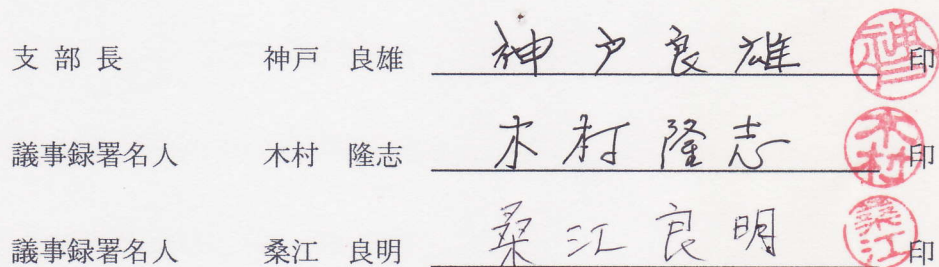 支部長 神戸 良雄 神戸良雄 神戸 印
議事録署名人 木村 隆志 木村隆志 木村 印
議事録署名人 桑江 良明 桑江良明 桑江 印